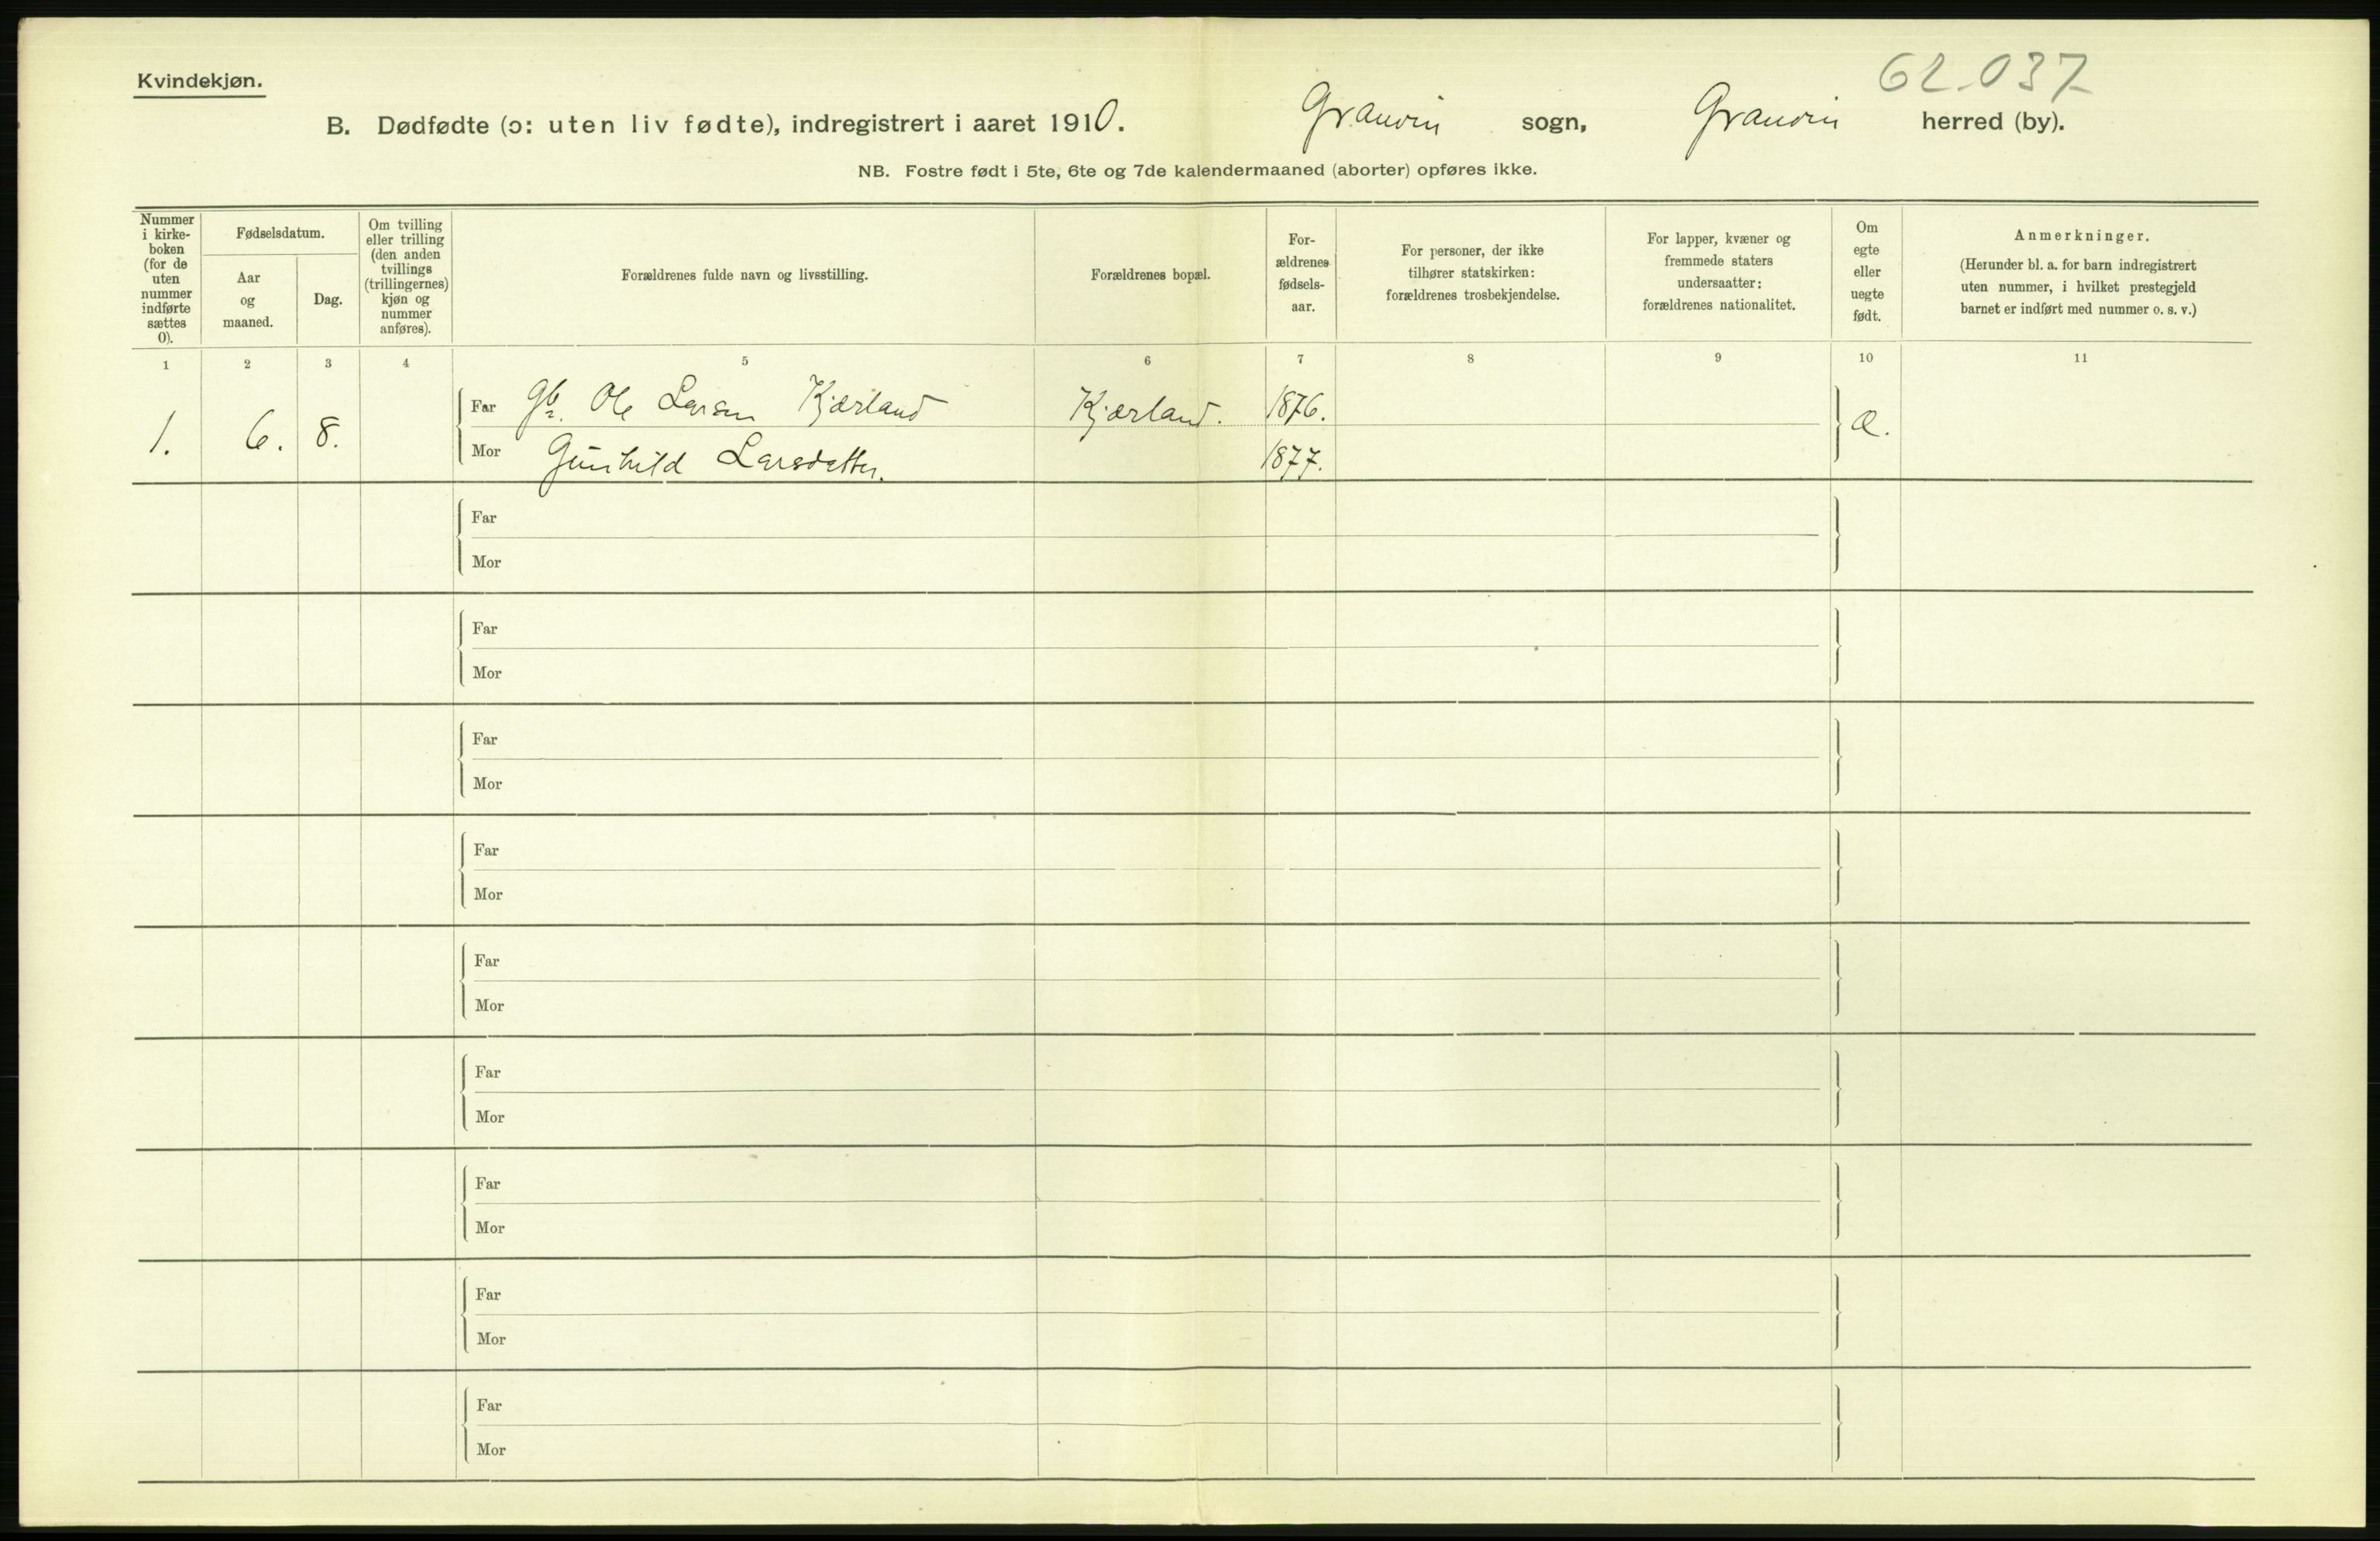 62.037
Kvindekjøn.
B. Dødfødte (ɔ: uten liv fødte), indregistrert i aaret 1910. Granvin sogn, Granvin herred (by).
NB. Fostre født i 5te, 6te og 7de kalendermaaned (aborter) opføres ikke.
Nummer
i kirke-
boken
(for de
uten
nummer
indførte
sættes
0).
Fødselsdatum.
Aar
og
maaned.
Dag.
Om tvilling
eller trilling
(den anden
tvillings
(trillingernes)
kjøn og
nummer
anføres).
Forældrenes fulde navn og livsstilling.
Forældrenes bopæl.
For-
ældrenes
fødsels-
aar.
For personer, der ikke
tilhører statskirken:
forældrenes trosbekjendelse.
For lapper, kvæner og
fremmede staters
undersaatter:
forældrenes nationalitet.
Om
egte
eller
uegte
født.
Anmerkninger.
(Herunder bl. a. for barn indregistrert
uten nummer, i hvilket prestegjeld
barnet er indført med nummer o. s. v.)
1 2 3 4 5 6 7 8 9 10 11
Far Gbr. Ole Larsen Kjærland Kjærland. 1876.
1. 6. 8. Æ.
Mor Gunhild Larsdatter. 1877.
Far
Mor
Far
Mor
Far
Mor
Far
Mor
Far
Mor
Far
Mor
Far
Mor
Far
Mor
Far
Mor